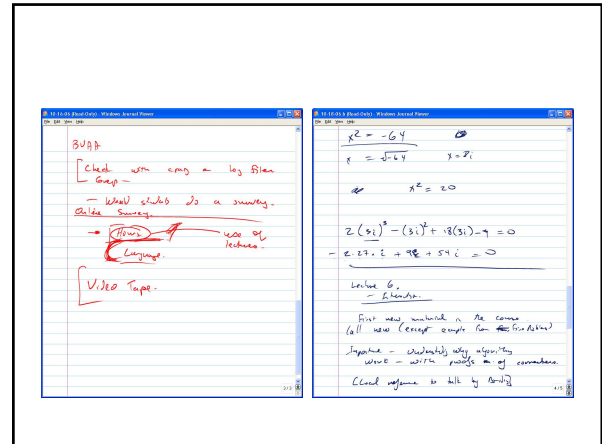 10-16-06 (Read-Only) - Windows Journal Viewer
File Edit View Help
BUAA
Check with craig on log files
Group -
- Would students do a survey.
Online Survey.
Hours
use of lectures.
Language.
Video Tape.
3/3
10-16-06 b (Read-Only) - Windows Journal Viewer
File Edit View Help
x² = -64
x = √-64 x = 8i
x² = 20
2(3i)³ - (3i)² + 18(3i) - 9 = 0
- 2·27·i + 9 + 54i = 0
Lecture 6.
First new material in the course
(all new (except example from
Important - understanding why algorithms
work - with proofs of correctness.
reference to talk by
4/5